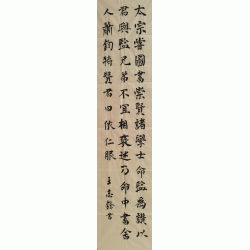 太宗嘗圖畫崇賢諸學士命監為讚以
君與監兄弟不宜相褒述乃命中書舍
人蕭鈞特賛君曰依仁服
王志書